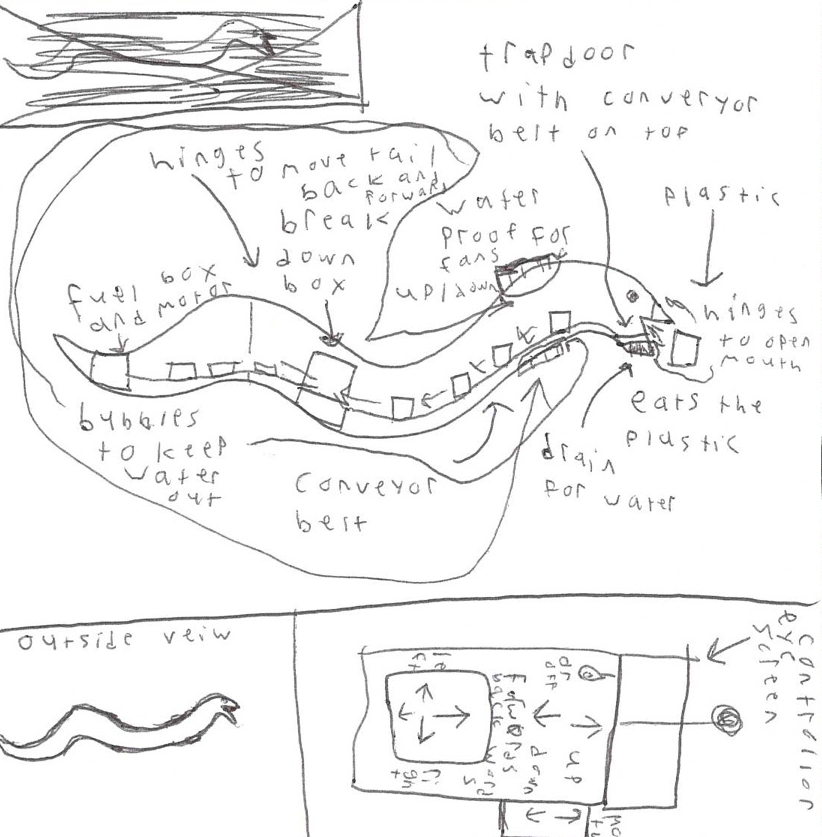 trapdoor
with converyor
belt on top
hinges
to move tail
back and
forward
break
down
box
water
proof for
fans
up/down
plastic
fuel box
and motor
hinges
to open
mouth
eats the
plastic
bubbles
to keep
water
out
conveyor
belt
drain
for water
outside veiw
controller
eye
screen
up
down